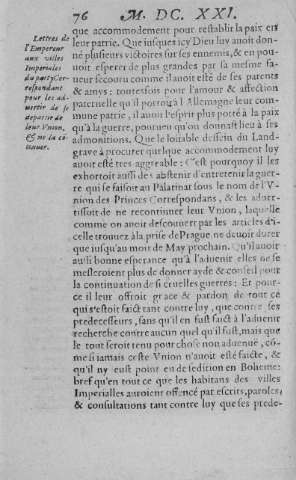 76 M. DC. XXI.
que accommodement pour restablir la paix en
leur patrie. Que iusques icy Dieu luy auoit don-
né plusieurs victoires sur ses ennemis, & en pou-
uoit esperer de plus grandes par sa mesme fa-
ueur secouru comme il auoit esté de ses parents
& amys : toutesfois pour l'amour & affection
paternelle qu'il portoit à l'Allemagne leur com-
mune patrie, il auoit l'esprit plus porté à la paix
qu'à la guerre, pourueu qu'on donnast lieu à ses
admonitions. Que le loüable dessein du Land-
graue à procurer quelque accommodement luy
auoit esté tres-aggreable : C'est pourquoy il les
exhortoit aussi des abstenir d'entretenir la guer-
re qui se faisoit au Palatinat sous le nom de l'V-
nion des Princes Correspondans, & les aduer-
tissoit de ne recontinuer leur Vnion, laquelle
comme on auoit descouuert par les articles d'i-
celle trouuez à la prise de Prague ne deuoit durer
que iusqu'au mois de May prochain. Qu'il auoit
aussi bonne esperance qu'à l'aduenir elles ne se
mesleroient plus de donner ayde & conseil pour
la continuation de si cruelles guerres : Et pour-
ce il leur offroit grace & pardon de tout ce
qui s'estoit faict tant contre luy, que contre ses
predecesseurs, sans qu'il en fust faict à l'aduenir
recherche contre aucun quel qu'il fust, mais que
le tout seroit tenu pour chose non aduenuë, cõ-
me si iamais ceste Vnion n'auoit esté faicte, &
qu'il n'y eust point eu de sedition en Boheme:
bref qu'en tout ce que les habitans des villes
Imperialles auroient offencé par escrits, paroles,
& consultations tant contre luy que ses prede-
Lettres de
l'Empereur
aux villes
Imperiales
du party Cor-
respondant
pour les ad-
uertir de se
departir de
leur Vnion,
& ne la cõ-
tinuer.